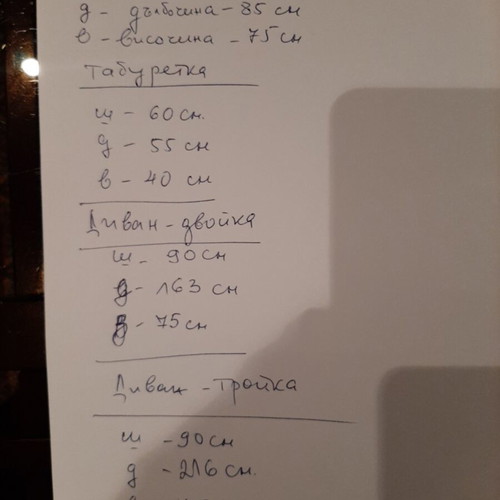 д - дълбочина - 85 см
в - височина - 75 см
Табуретка
ш - 60 см.
д - 55 см
в - 40 см
Диван - двойка
ш - 90 см
д - 163 см
в - 75 см
Диван - Тройка
ш - 90 см
д - 216 см.